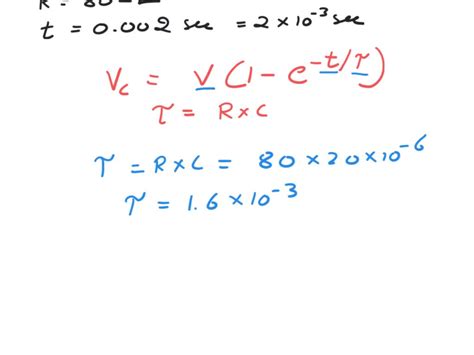 R = 80 Ω
t = 0.002 sec = 2 × 10⁻³ sec
V_c = V (1 - e^{-t/τ})
τ = R × C
τ = R × C = 80 × 20 × 10⁻⁶
τ = 1.6 × 10⁻³